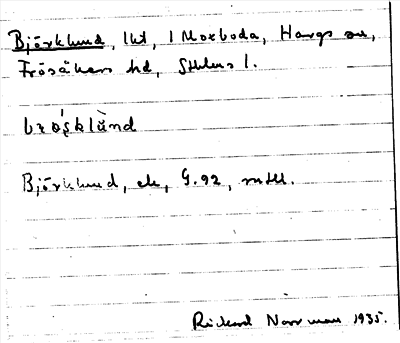 Björklund, lht, i Morboda, Hargs sn,
Frösåkers hd, Sthlms l.
bʒö́ṣklùnd
Björklund, ek, G.92, mtl.
Rickard Norrman 1935.